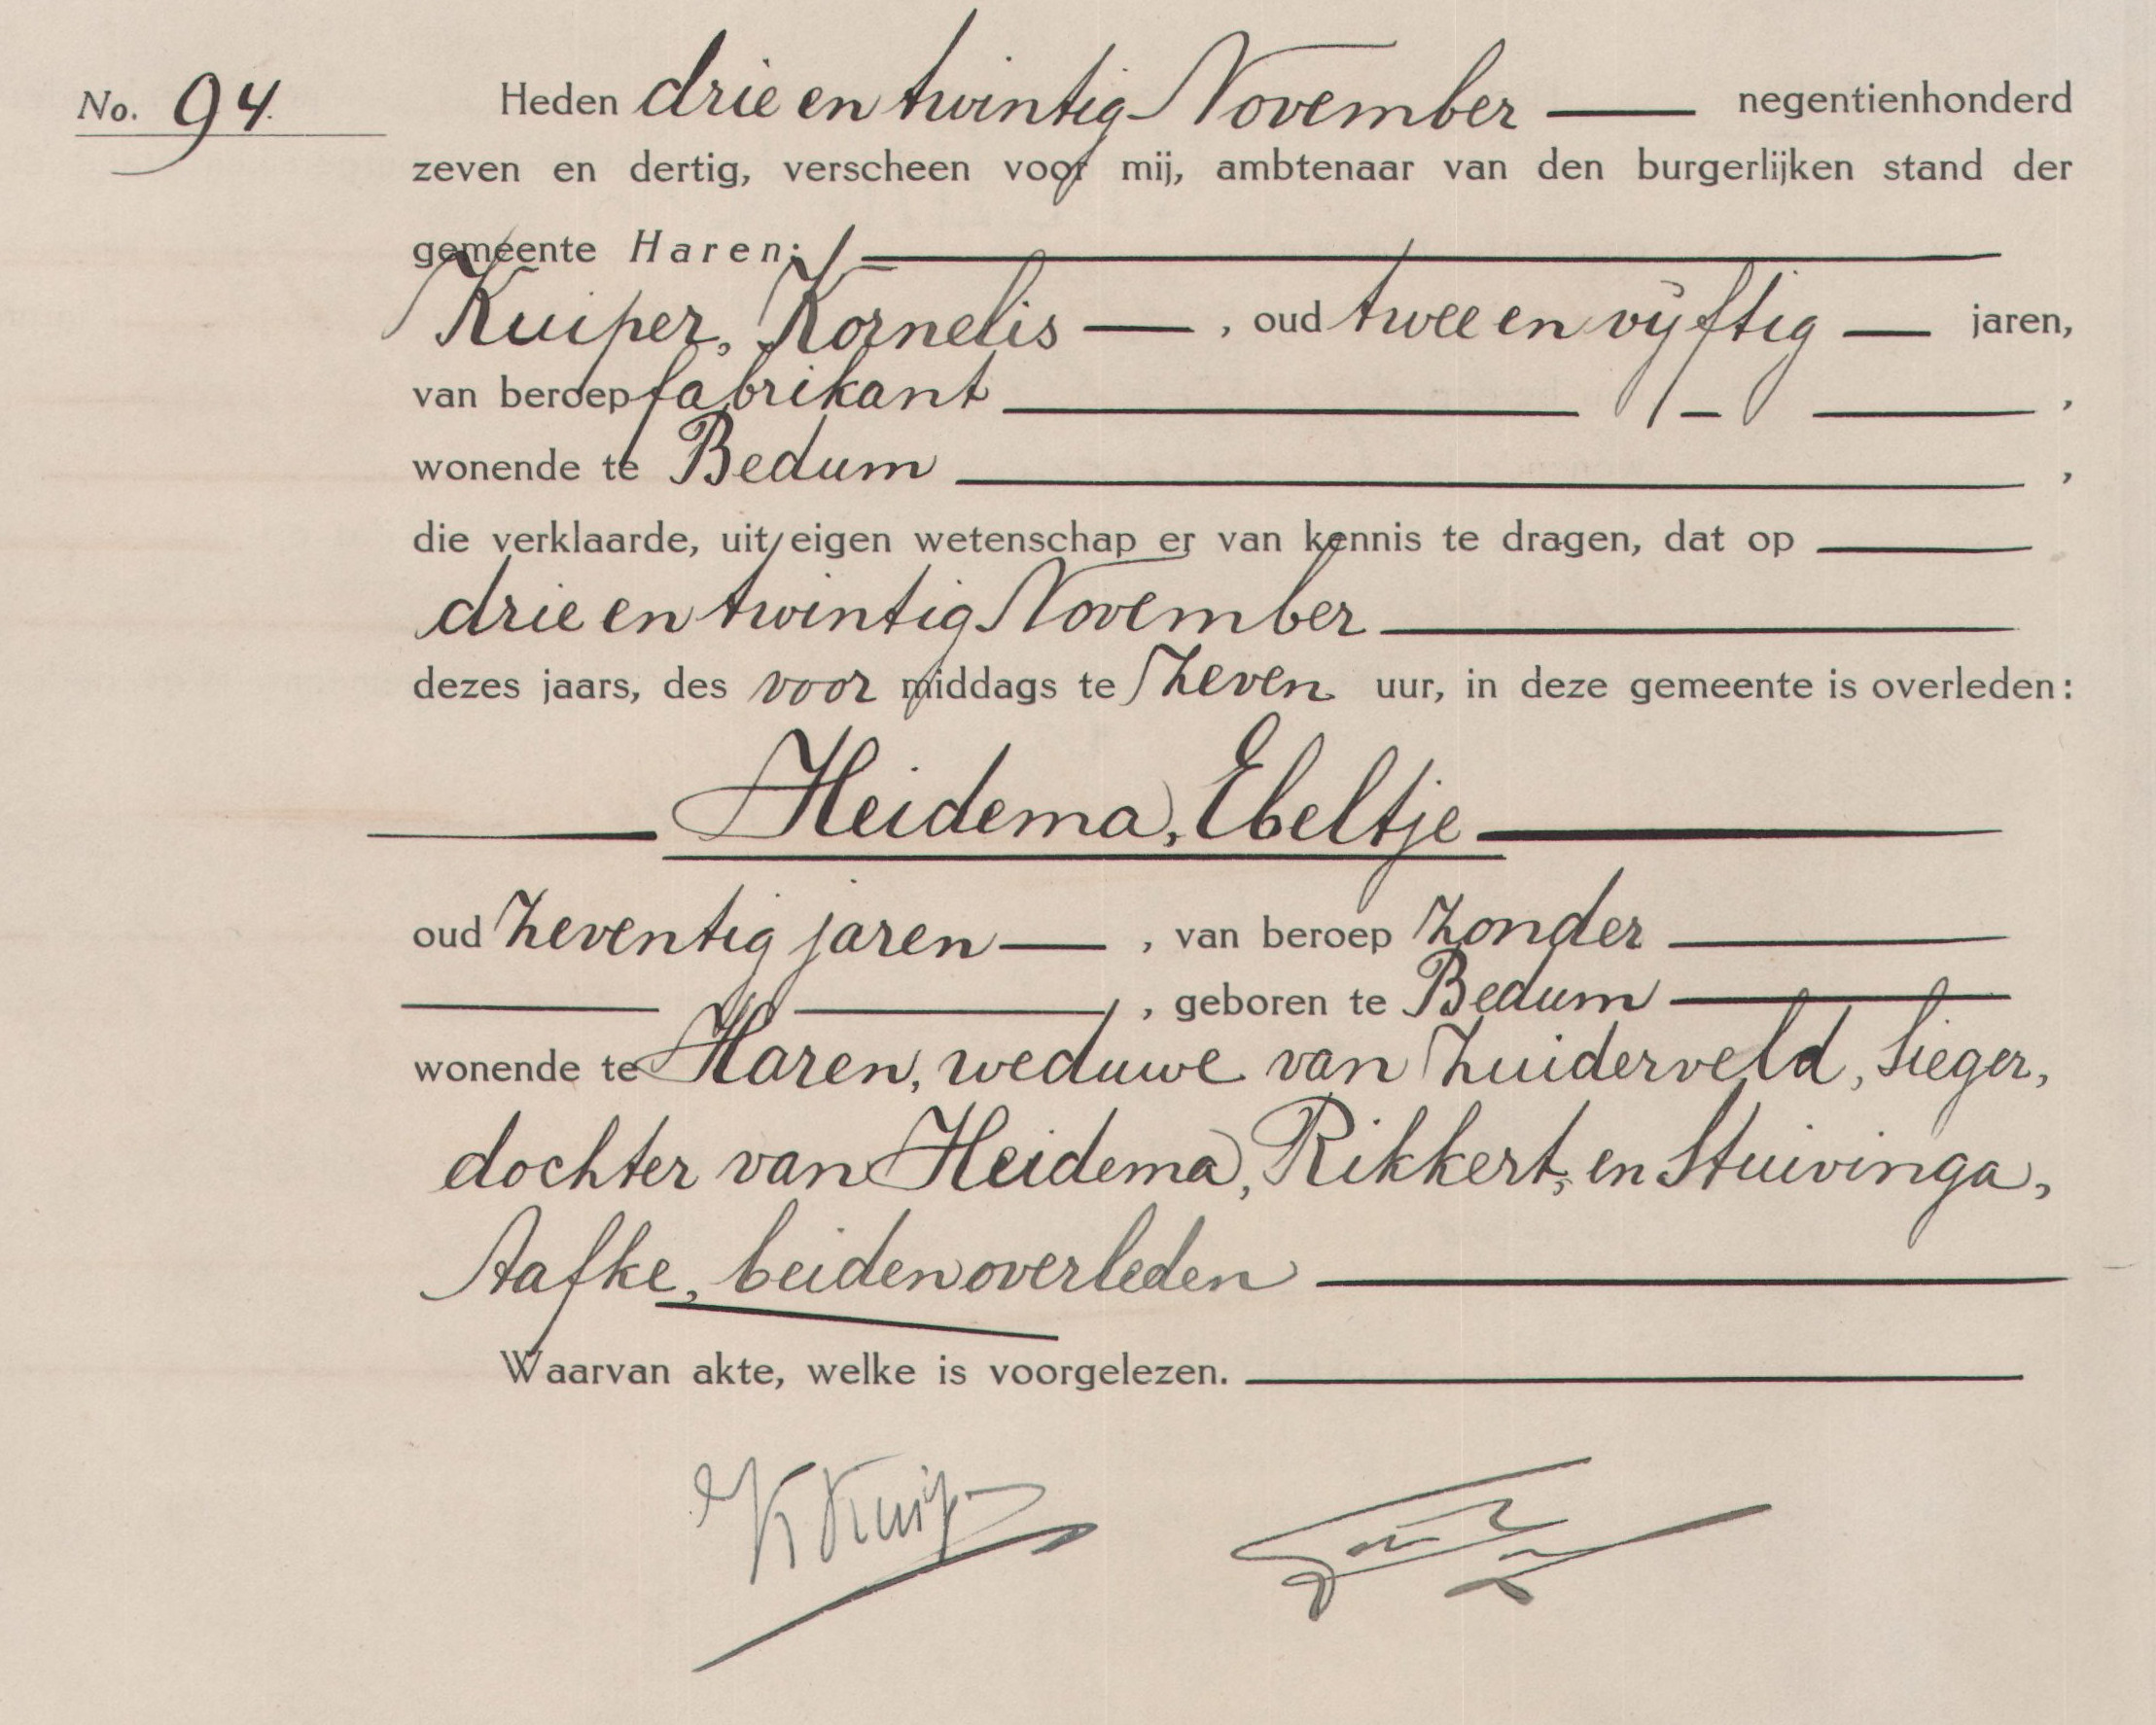 No. 94.
Heden drie en twintig November negentienhonderd
zeven en dertig, verscheen voor mij, ambtenaar van den burgerlijken stand der
gemeente Haren:
Kuiper, Kornelis , oud twee en vijftig jaren,
van beroep fabrikant ,
wonende te Bedum ,
die verklaarde, uit eigen wetenschap er van kennis te dragen, dat op
drie en twintig November
dezes jaars, des voor middags te zeven uur, in deze gemeente is overleden:
Heidema, Ebeltje
oud zeventig jaren , van beroep zonder
, geboren te Bedum
wonende te Haren, weduwe van Zuiderveld, Sieger,
dochter van Heidema, Rikkert, en Stuivinga,
Aafke, beiden overleden
Waarvan akte, welke is voorgelezen.
K Kuip